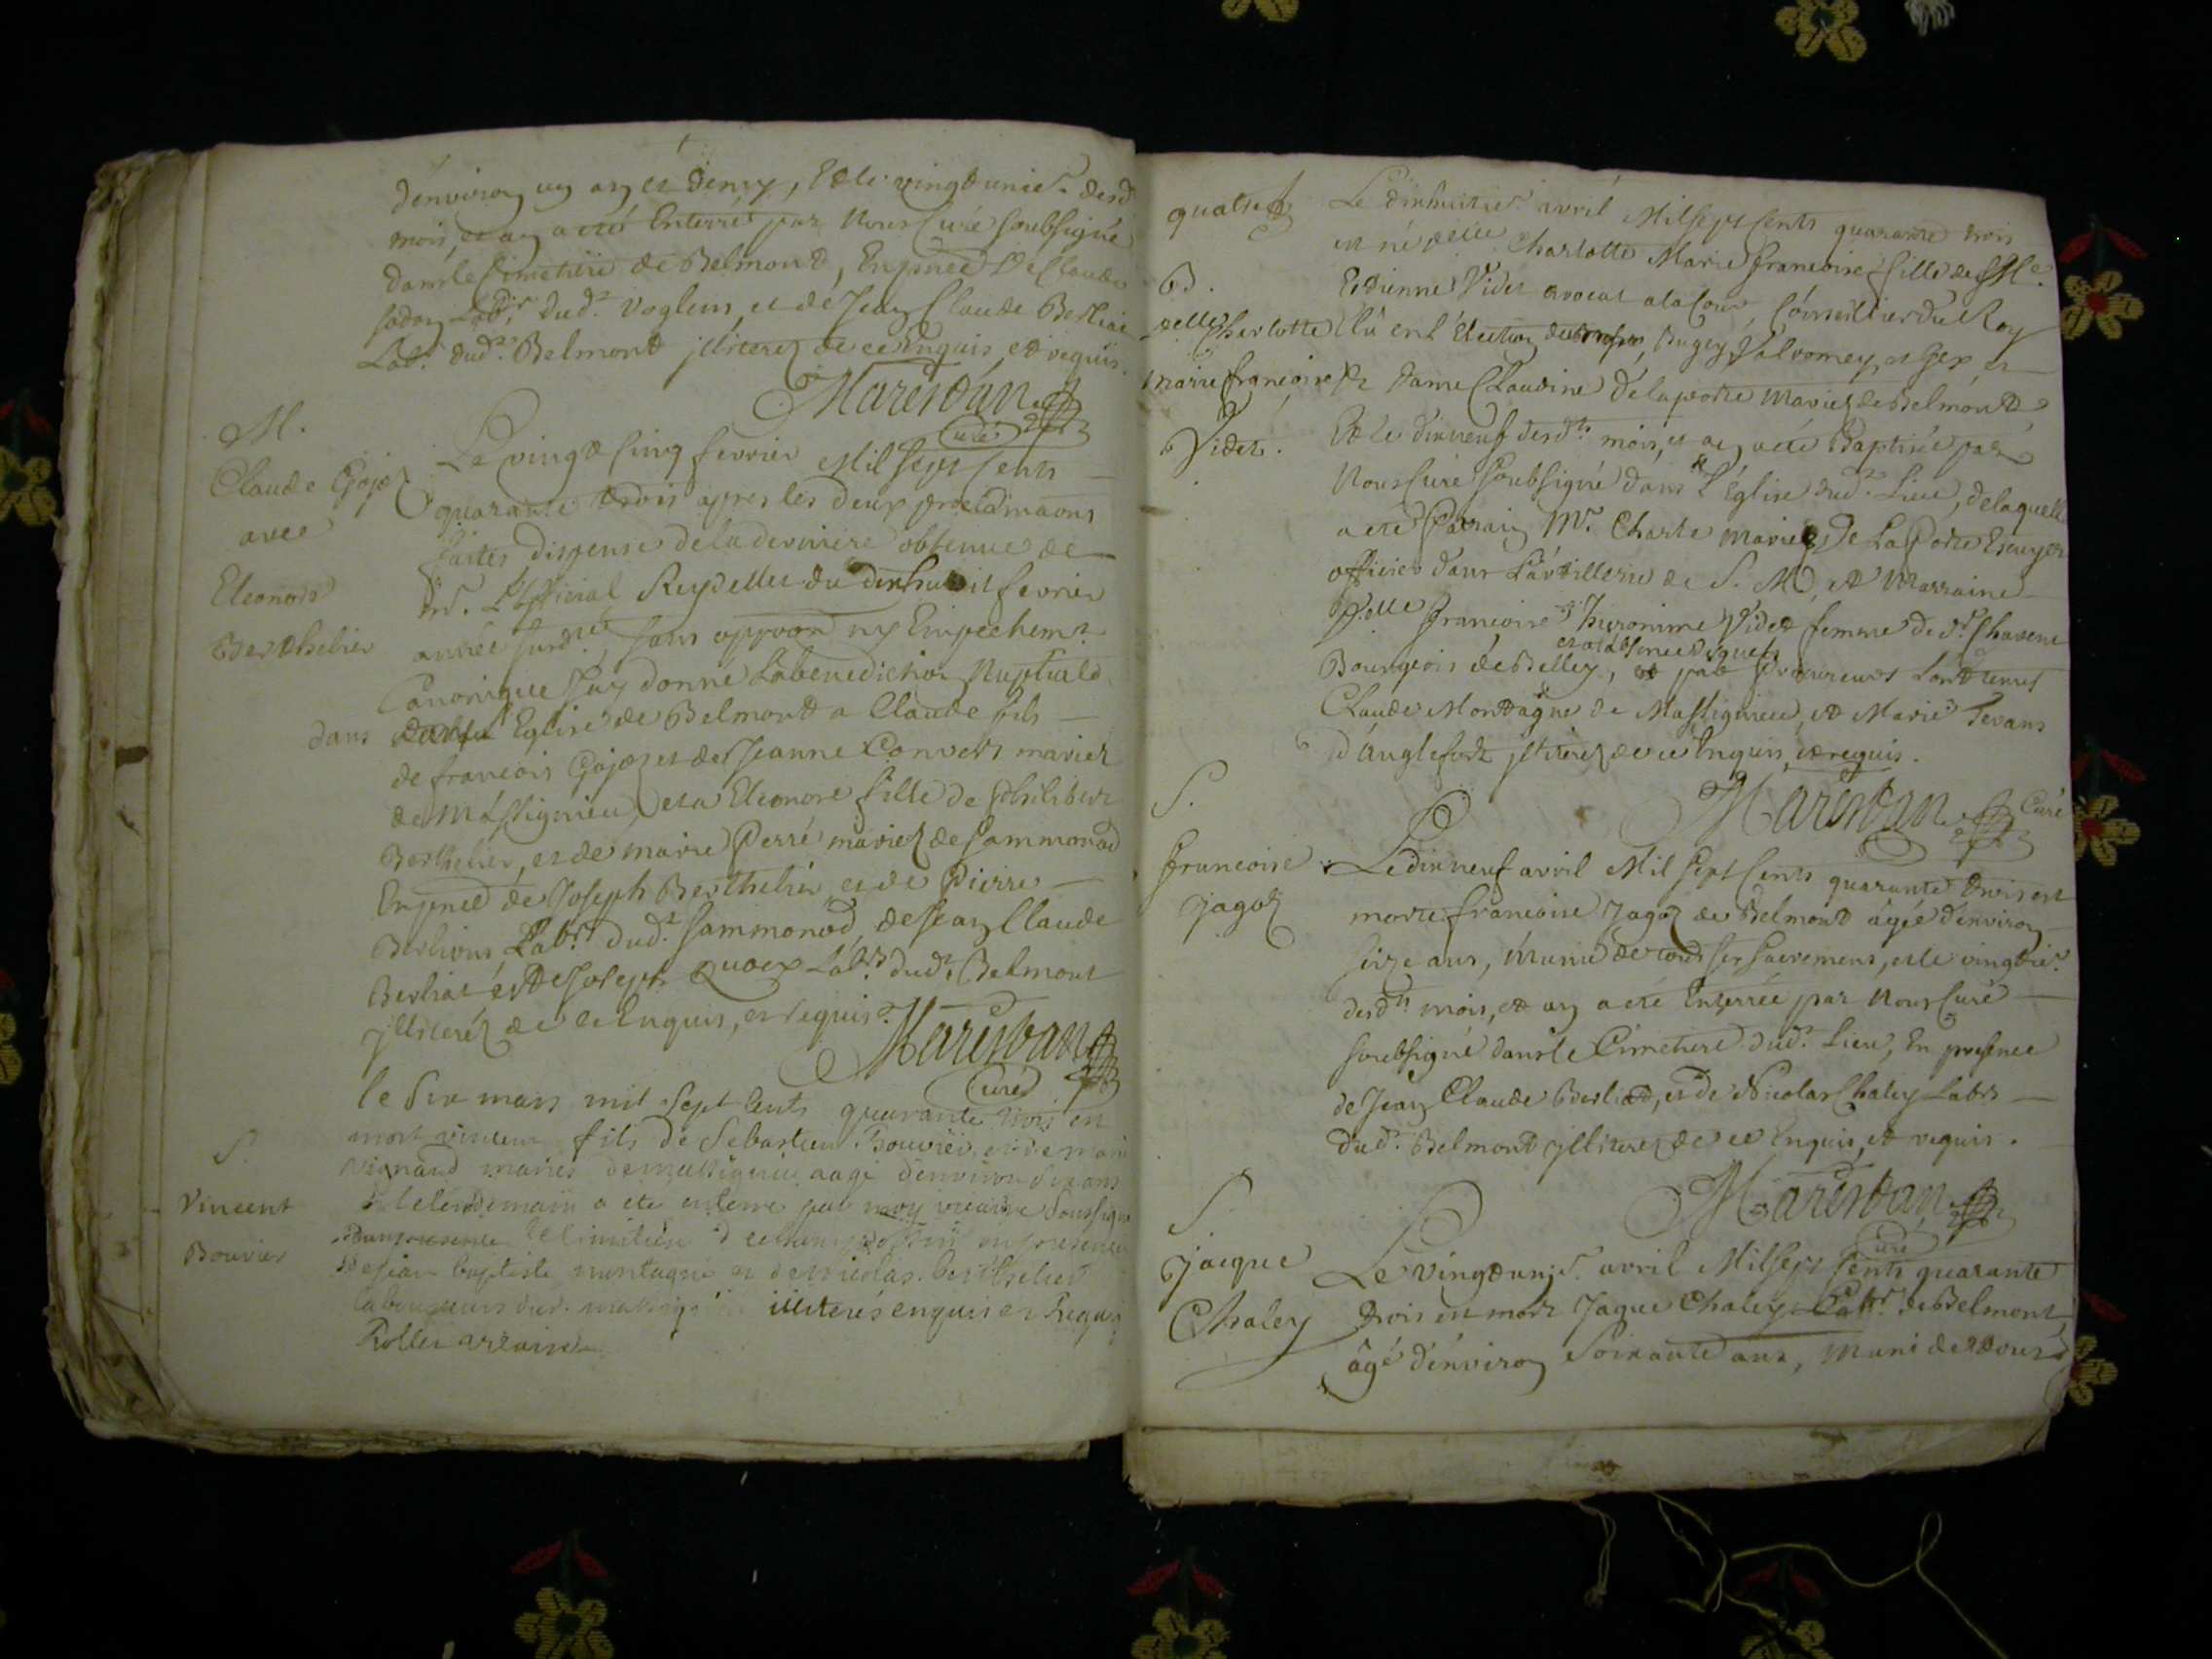 d'environ un an et demy, Et le vingt unie.r desd.
mois, et an a eté Enterré par Nous Curé Soubsigné
dans le Cimetiere de Belmont, En pnce de Claude
Labr. dud. Voglens, et de Jean Claude Berliat
Labr. dud. Belmont illiterez de ce Enquis et requis.
Marestan
Curé
M.
Claude Gojoz
avec
Eleonore
Berthelier
Le vingt cinq fevrier Mil Sept Cents
quarante trois apres les deux proclamaons
faites dispense de la derniere obtenue de
Mr. L'official Reydellet du dixhuit fevrier
année susd. sans oppoon ny Empechemt.
Canonique J'ay donné La benediction Nuptiale
dans l'Eglise de Belmont a Claude fils
de francois Gojoz et de Jeanne Convert mariez
de Massignieu, et a Eleonore fille de Philibert
Berthelier, et de marie Perré mariez de Sammonod
En pnce de Joseph Berthelier et de Pierre
Labrs dud. Sammonod, de Jean Claude
Berliat et de Joseph Quoex Labrs dud. Belmont
illiterez de ce Enquis, et requis.
Marestan
Curé
S.
Vincent
Bouvier
le Six mars mil Sept Cents quarante trois est
mort vincent fils de Sebastien Bouvier et de marie
vignand mariés de massignieu aagé d'environ dix ans
et le lendemain a ete enterré par moy vicaire Soussigné
en presence
de jean baptiste montagne et de nicolas berthelier
laboureurs dud. illiterés enquis et Requis
Rollet vicaire
quatre
B.
Delle Charlotte
marie francoise
Videt.
Le dixhuitie.r avril Mil Sept Cents quarante trois
est né Delle Charlotte Marie francoise fille de Me.
Etienne Videt avocat a la Cour, Conseillier du Roy
Elû en l'Election de Bugey Valromey, et Gex, et
De Dame Claudine De laporte mariez de Belmont
Et le dixneuf desdts mois, et an a eté Baptisée par
Nous Curé Soubsigné dans l'Eglise dud. Lieu, de laquelle
a eté Parrain Mr. Charle marie De La Porte Ecuyer
officier dans L'artillerie de S. M, et Marraine
Delle francoise Hieronime Videt femme de Sr. Chavent
Bourgeois de Belley, et par Procureurs L'ont tenus
Claude Montagne de Massignieu, et Marie Tevans
d'Anglefort illiterez de ce Enquis, et requis.
Marestan Curé
S.
francoise
Jagoz
Le dixneuf avril Mil Sept Cents quarante trois est
morte francoise Jagoz de Belmont âgée d'environ
seize ans, Munie de tous ses Sacremens, et le vingtie.r
desdts mois, et an a eté Enterrée par Nous Curé
soubsigné dans le Cimetiere dud. Lieu, En presence
de Jean Claude Berliat, et de Nicolas Chaley Labrs
dud. Belmont illiterez de ce Enquis, et requis.
Marestan
Curé
S.
jacque
Chaley
Le vingt unie.r avril Mil Sept Cents quarante
trois est mort Jaque Chaley Labr. de Belmont,
âgé d'environ Soixante ans, muni de tous